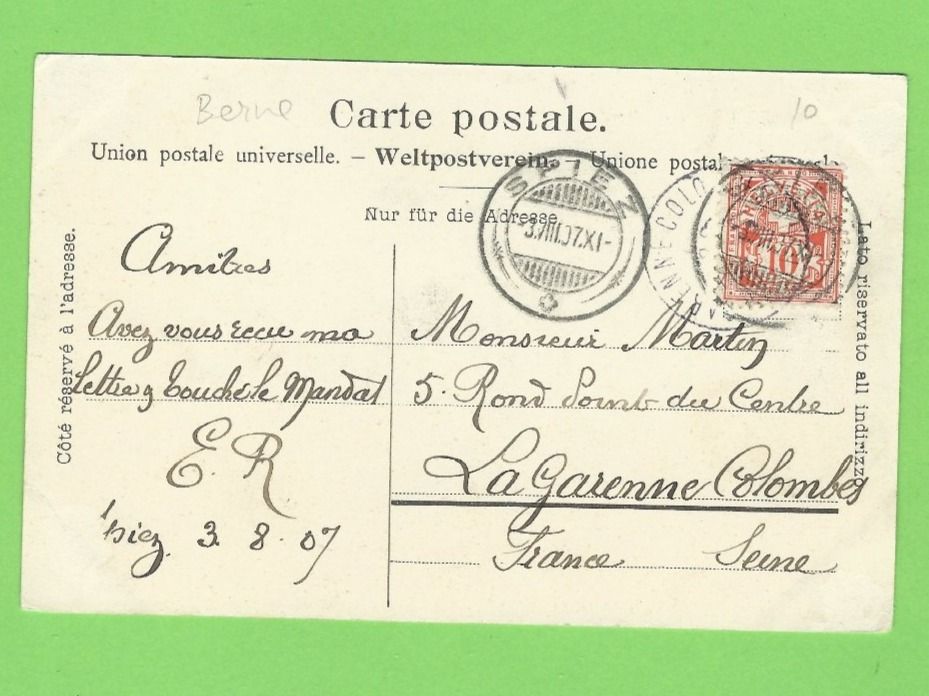 Berne
10
Carte postale.
Union postale universelle. – Weltpostverein. – Unione postal
Nur für die Adresse
SPIEZ
-3.VIII.07.XI-
GARENNE COLO
10
Côté réservé à l'adresse.
Lato riservato all indirizzo
Amitiés
Avez vous recu ma
Lettre touché le Mandat
E. R
Spiez 3. 8. 07
Monsieur Martin
5. Rond Point du Centre
La Garenne Colombes
France Seine